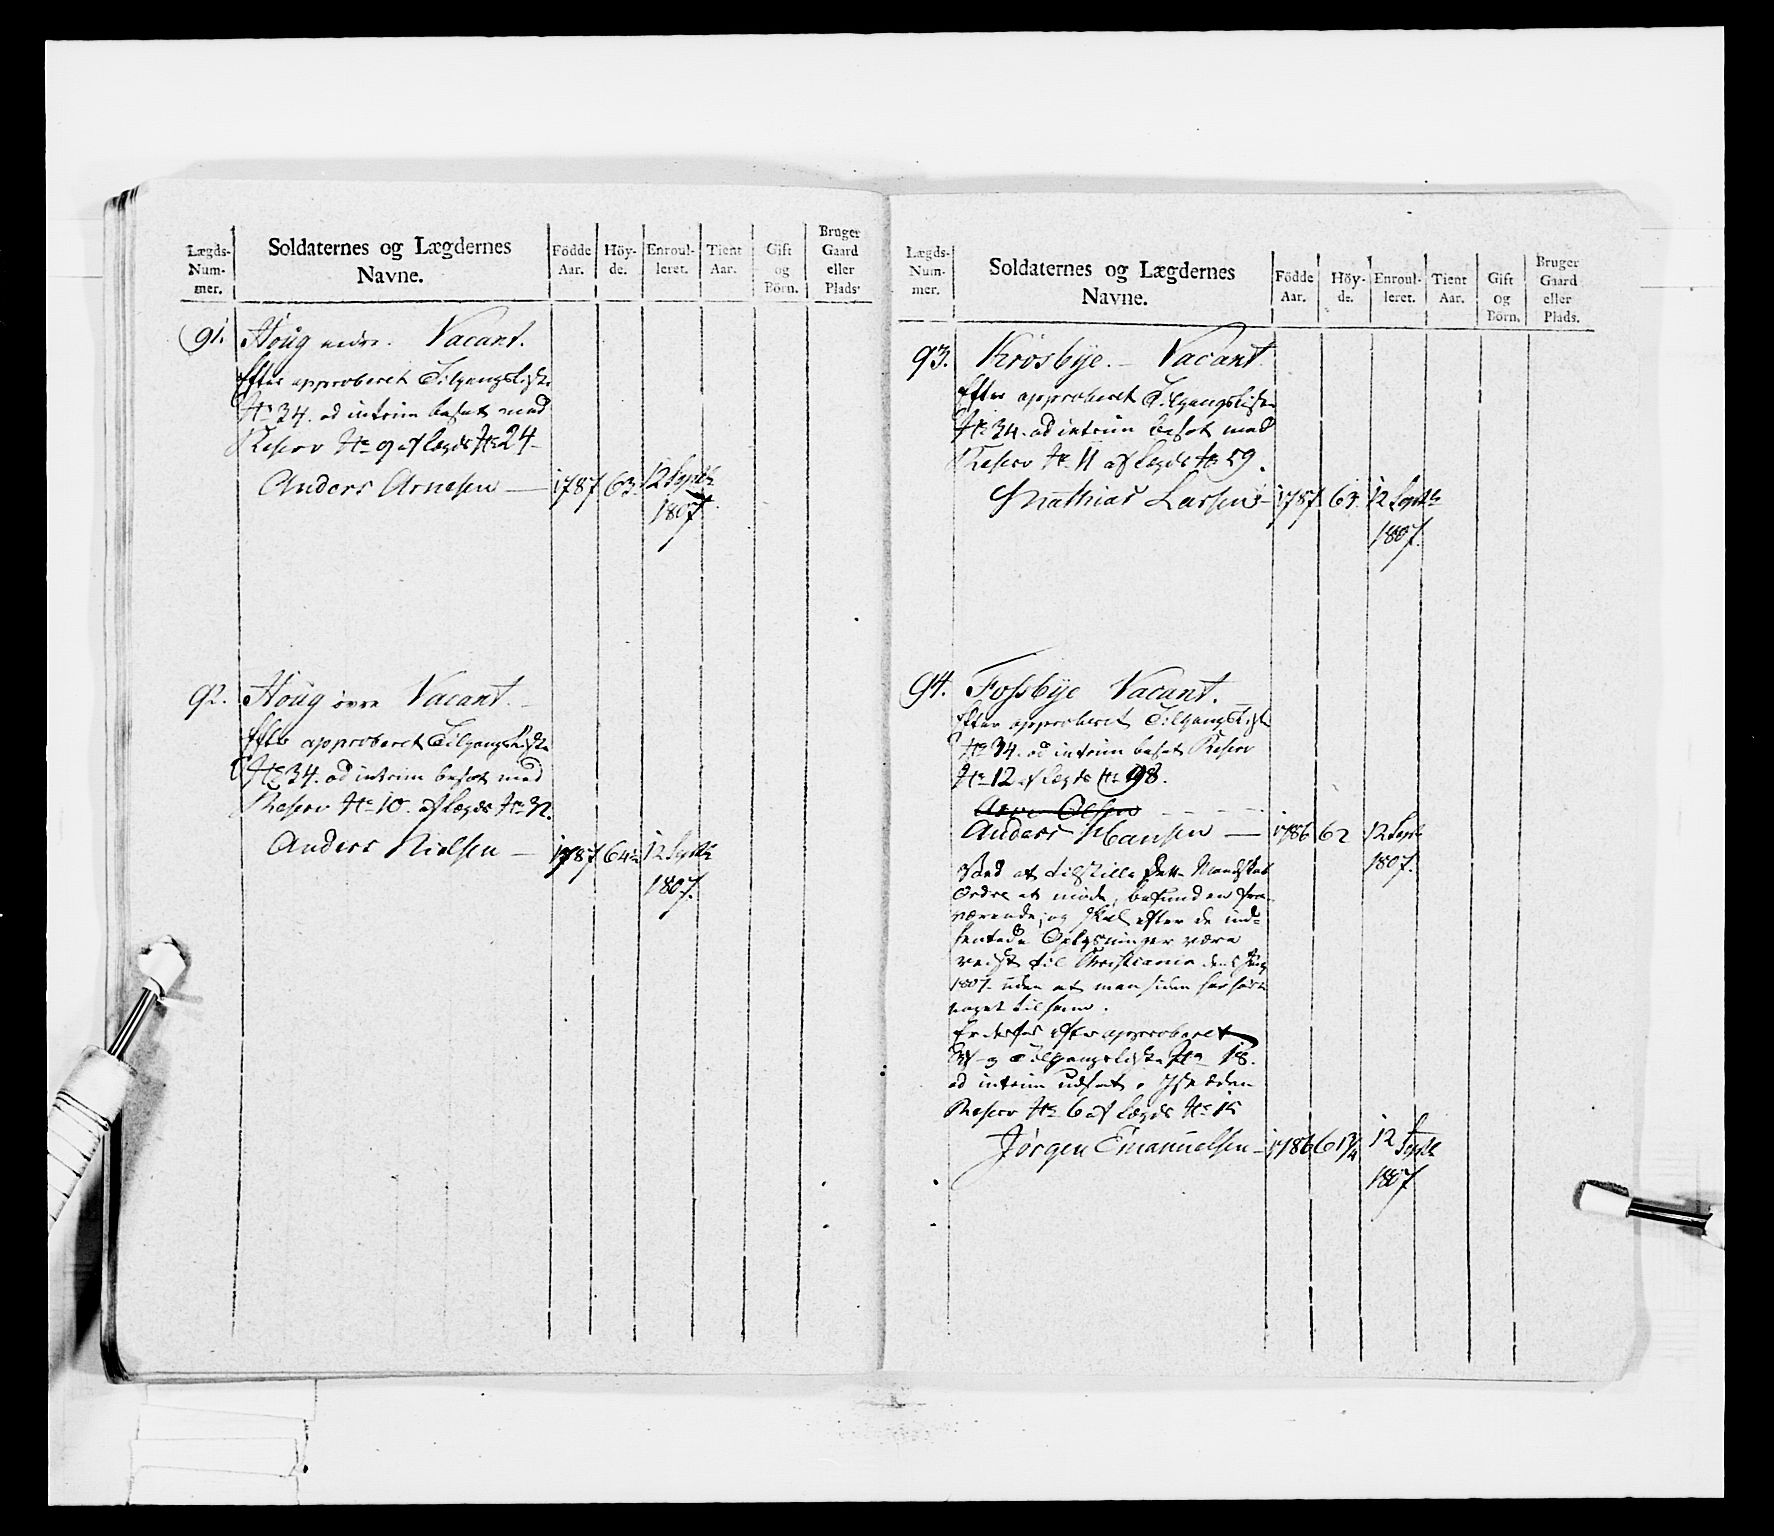 Lægds-Num-mer.
Soldaternes og Lægdernes Navne.
Födde Aar.
Höy-de.
Enroul-leret.
Tient Aar.
Gift og Börn.
Bruger Gaard eller Plads.
91. Houg nedre. Vacant.
Efter approberet Tilgangsliste
No 34. ad intrim besat med
Reserv No 9 af Lægds No 24
Anders Arnesen — 1787. 63. 12 Septbr
1807.
92. Houg övre Vacant.
Efter approberet Tilgangsliste
No 34. ad intrim besat med
Reserv No 10. af Lægds No 32.
Anders Nielsen — 1787. 64½ 12 Septbr
1807.
Lægds-Num-mer.
Soldaternes og Lægdernes Navne.
Födde Aar.
Höy-de.
Enroul-leret.
Tient Aar.
Gift og Börn.
Bruger Gaard eller Plads.
93. Krosbye. — Vacant.
Efter approberet Tilgangsliste
No 34. ad intrim besat med
Reserv No 11 af Lægds No 59.
Mathias Larsen — 1787. 63. 12 Septbr
1807.
94. Fossbye Vacant.
Efter approberet Tilgangsliste
No 34. ad intrim besat Reserv
No 12 af Lægds No 98.
Arne Olsen
Anders Hansen — 1786 62 12 Septbr
1807.
Ved at tilstille dette Mandskab
Ordre at möde, befunden fra-
værende, og skal efter de ind-
hentede Oplysninger være
reist til Christiania
1807. uden at man siden har
noget til ham.
Er derfor efter approberet
Af- og Tilgangsliste No 18.
ad intrim udsat.
Reserv No 6 af Lægds No 15
Jørgen Emanuelsen — 1786 61¾ 12 Septbr
1807